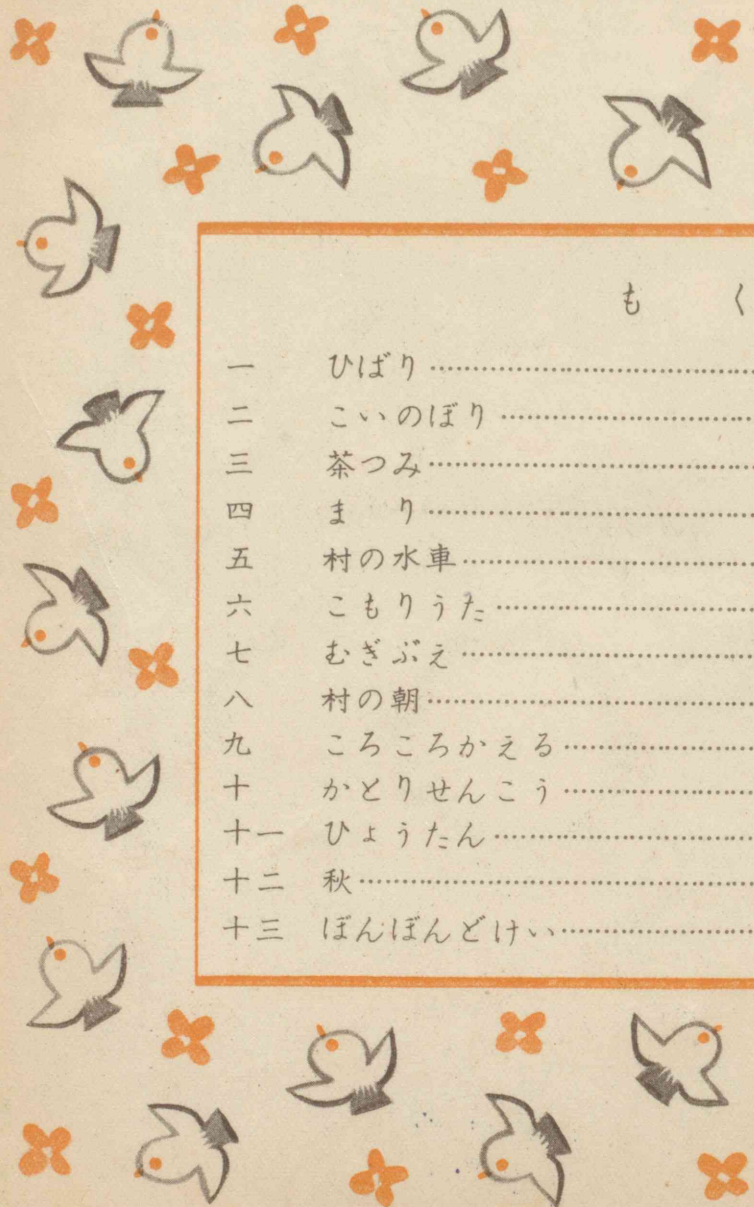 も く
一 ひばり
二 こいのぼり
三 茶つみ
四 ま り
五 村の水車
六 こもりうた
七 むぎぶえ
八 村の朝
九 ころころかえる
十 かとりせんこう
十一 ひょうたん
十二 秋
十三 ぼんぼんどけい